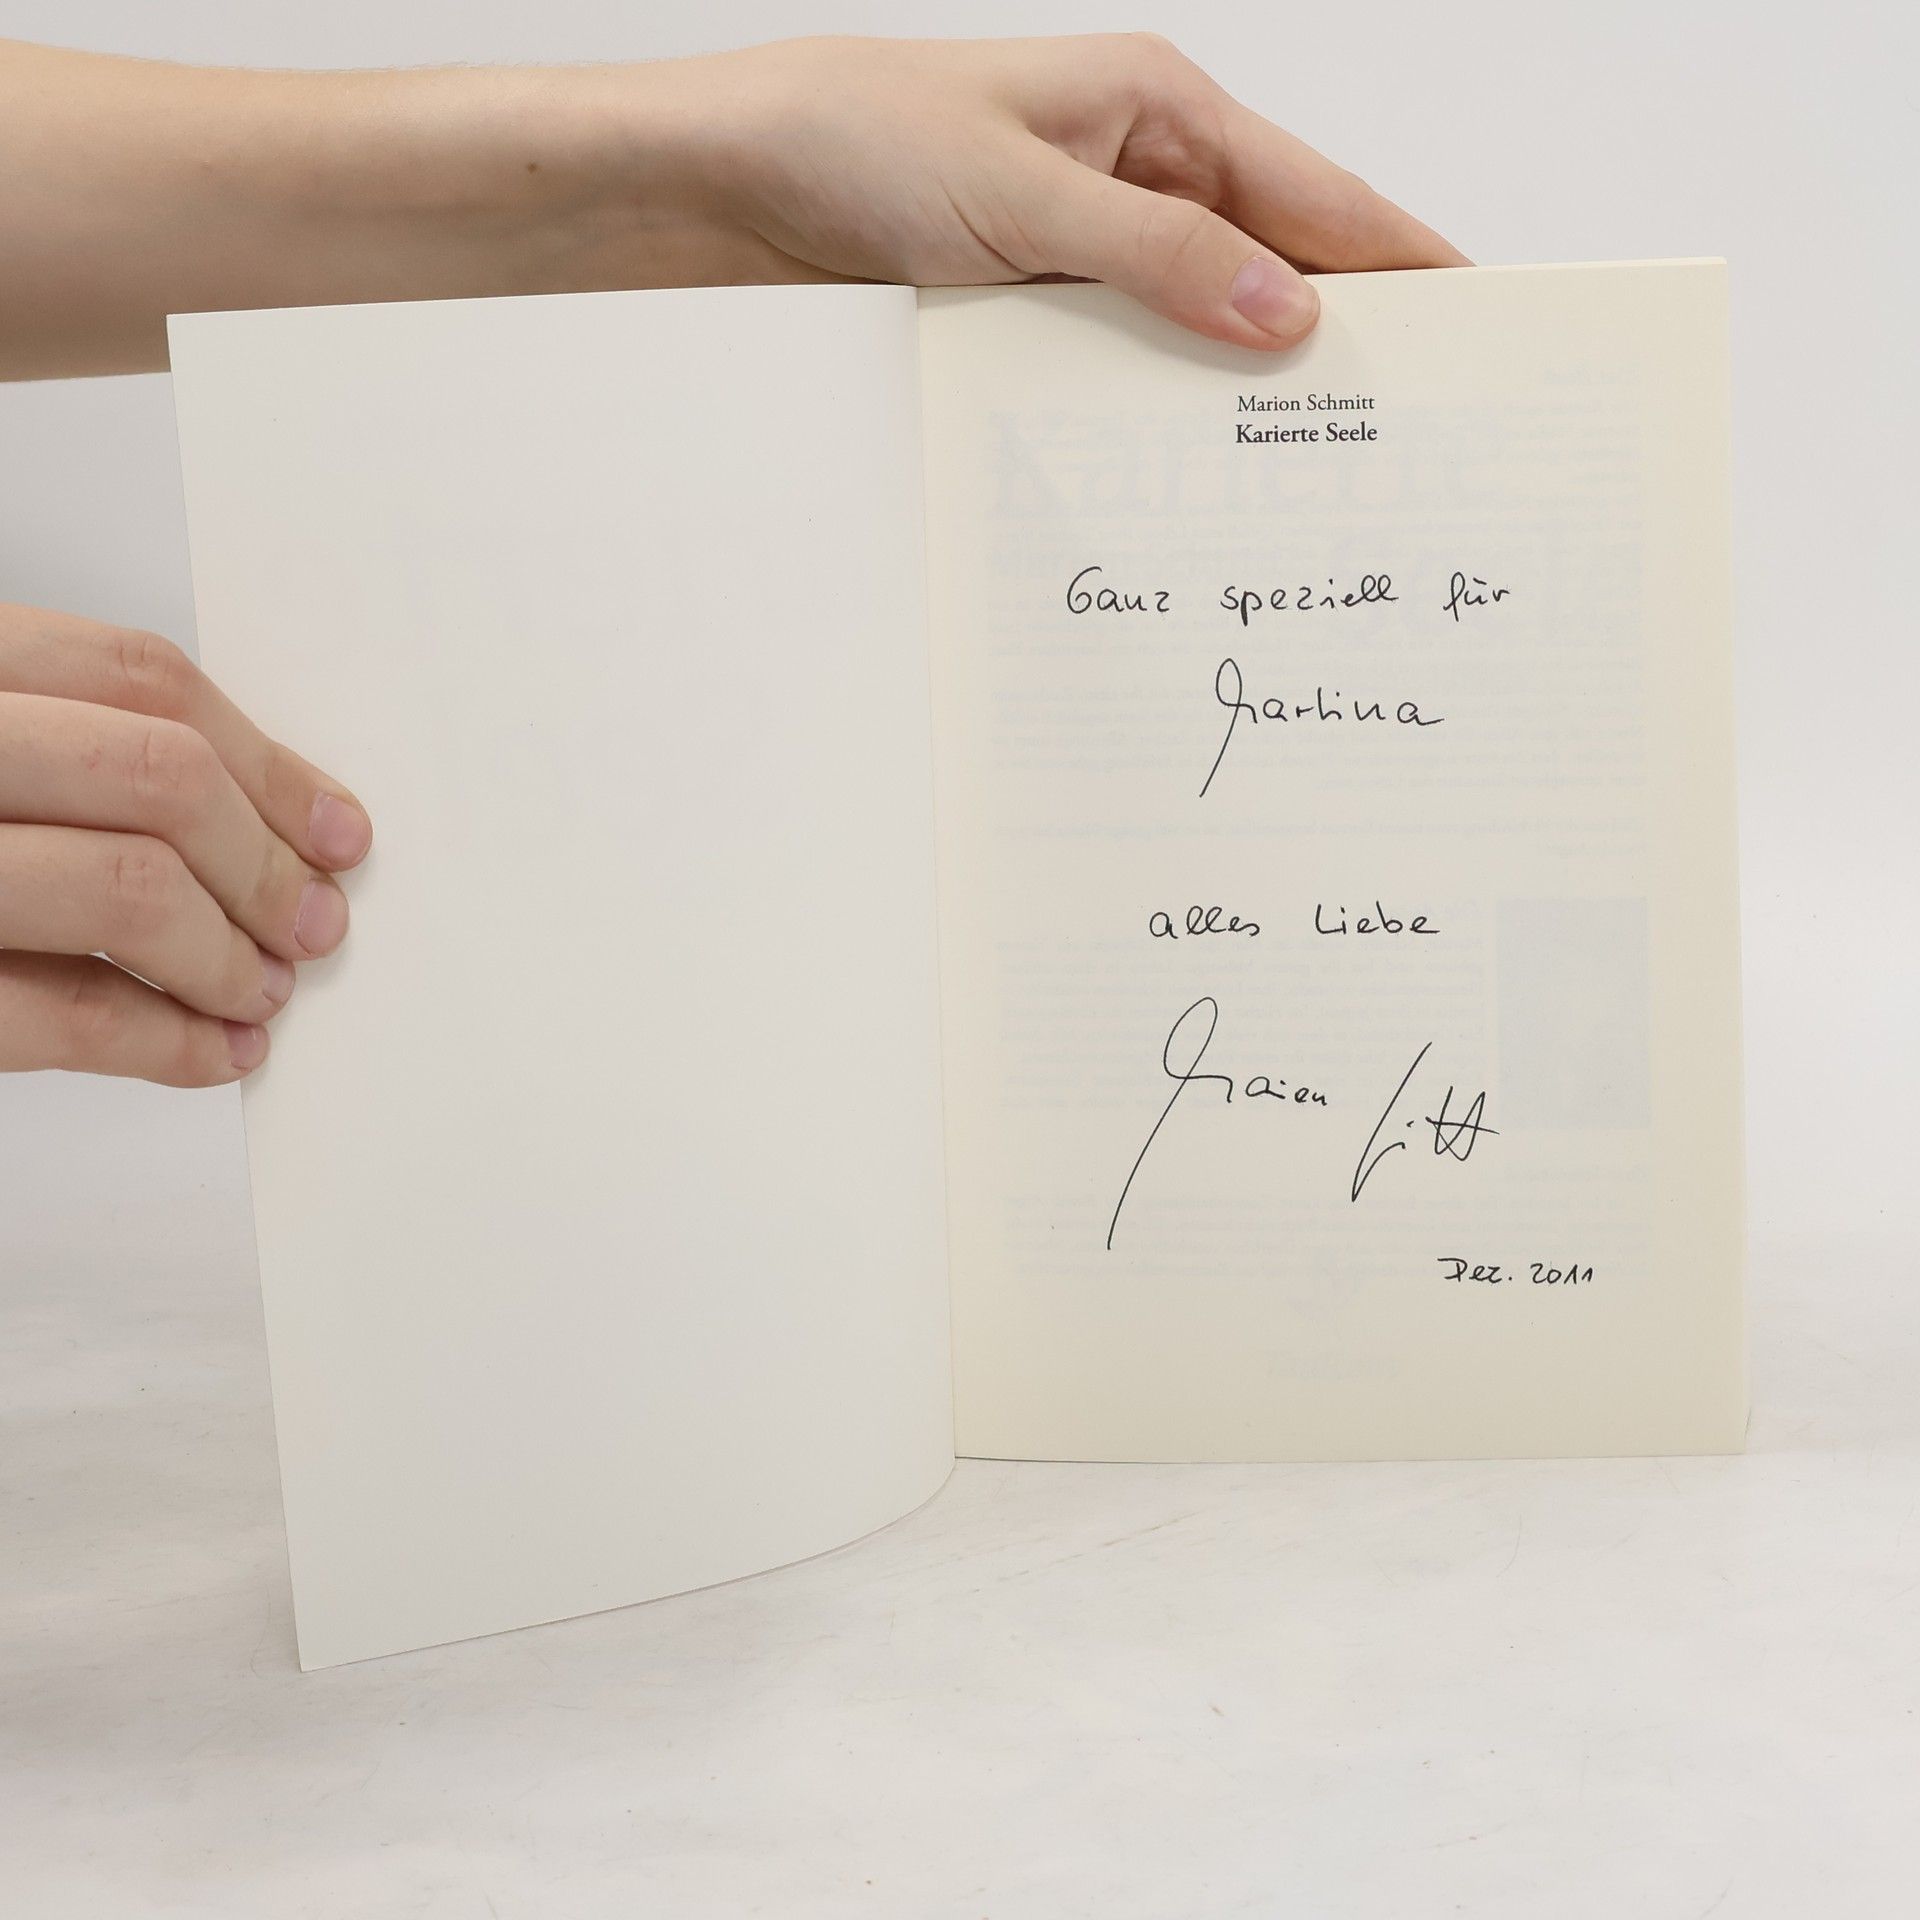 Marion Schmitt
Karierte Seele
Ganz speziell für
Martina
alles Liebe
Marion
Dez. 2011